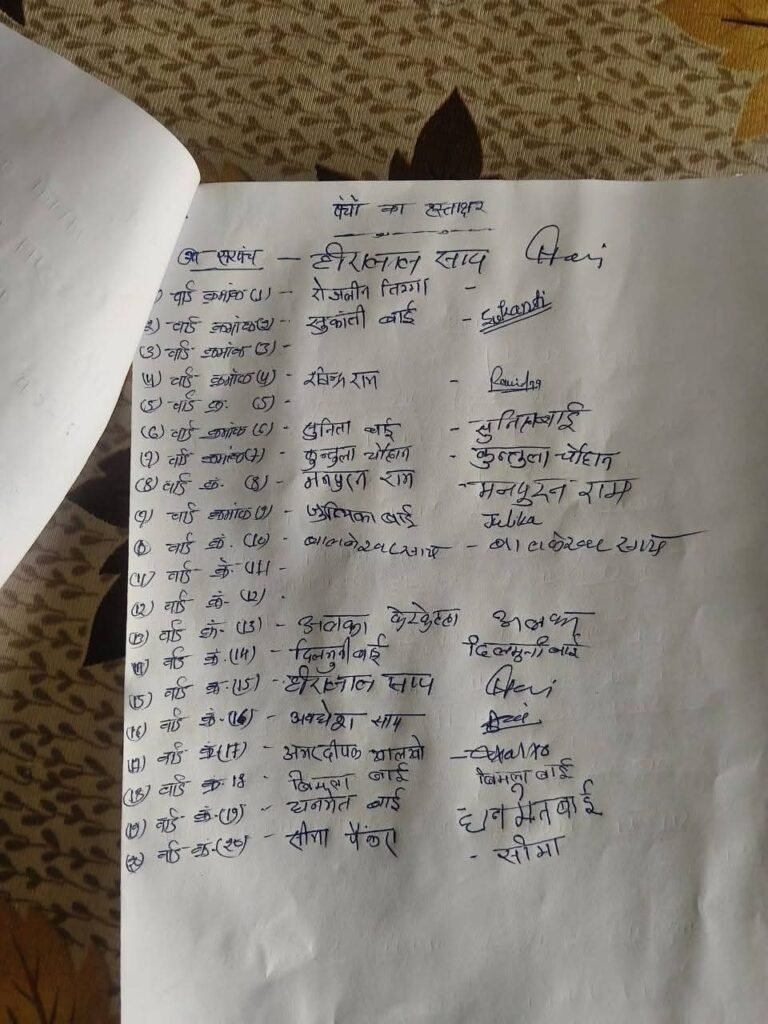 पंचो का हस्ताक्षर
उप सरपंच - हीरालाल साय Hari
वार्ड क्रमांक (1) - रोजलीन तिग्गा -
2) वार्ड क्रमांक (2) - सुकांती बाई - Sukanti
(3) वार्ड क्रमांक (3) -
(4) वार्ड क्रमांक (4) - रविन्द्र राम - Ravindra
(5) वार्ड क्र. (5) -
(6) वार्ड क्रमांक (6) - सुनिता बाई - सुनिता बाई
(7) वार्ड क्रमांक (7) - कुन्तुला चौहान - कुन्तुला चौहान
(8) वार्ड क्रं. (8) - मनपुरन राम - मनपुरन राम
(9) वार्ड क्रमांक (9) - बाई
वार्ड क्रं. (10) - बालकेश्वर साय - बालकेश्वर साय
(11) वार्ड क्रं. (11) -
(12) वार्ड क्रं. (12) -
(13) वार्ड क्रं. (13) - अलका केरकेट्टा अलका
(14) वार्ड क्रं. (14) - दिलमुनी बाई दिलमुनी बाई
(15) वार्ड क्र. (15) - हीरालाल साय Hari
(16) वार्ड क्रं. (16) - अवधेश साय
(17) वार्ड क्रं (17) - अमरदीप खालखो - Khalxo
(18) वार्ड क्र. 18 बिमला बाई बिमला बाई
(19) वार्ड क्रं. (19) - धनमेत बाई धनमेत बाई
(20) वार्ड क्रं. (20) - सीमा पैंकरा - सीमा